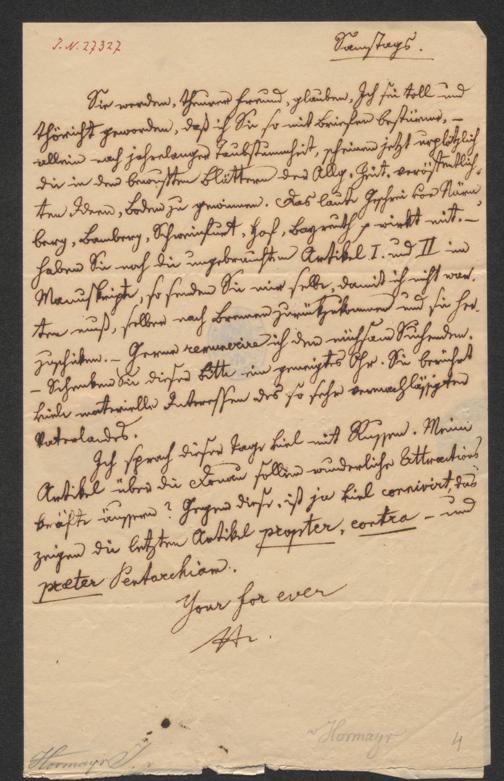 I. N. 27327
Samstags.
Sie werden, theurer Freund, glauben, Ich sei toll und
thöricht geworden, daß ich Sie so mit Briefen bestürme, –
allein nach jahrelanger Taubstummheit, scheinen jetzt urplötzlich
die in den bewußten Blättern der Allg. Zeit. veröffentlich-
ten Ideen, Boden zu gewinnen. Das laute Geschrei von Nürn-
berg, Bamberg, Schweinfurt, Hof, Bayreuth p wirkt mit. –
haben Sie noch die ungebrauchten Artikel I. und II im
Manuskripte, so senden Sie mir selbe, damit ich nicht war-
ten muß, selber nach Bremen zurückzukommen und sie her-
zuschiken. – Gerne remunerire ich den mühsam Suchenden.
– Schenken Sie dieser Bitte ein geneigtes Ohr. Sie berührt
viele materielle Interessen des so sehr vernachläßigten
Vaterlandes.
Ich sprach dieser Tage viel mit Russen. Meine
Artikel über die Donau sollen wunderliche Attractions
kräfte äussern? Gegen diese, ist ja viel connivirt, das
zeigen die letzten Artikel propter, contra – und
praeter Pentarchiam.
Your for ever
Hormayr
Hormayr J.
4